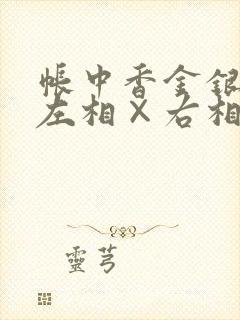 帳中香金銀
左相×右相
靈芎